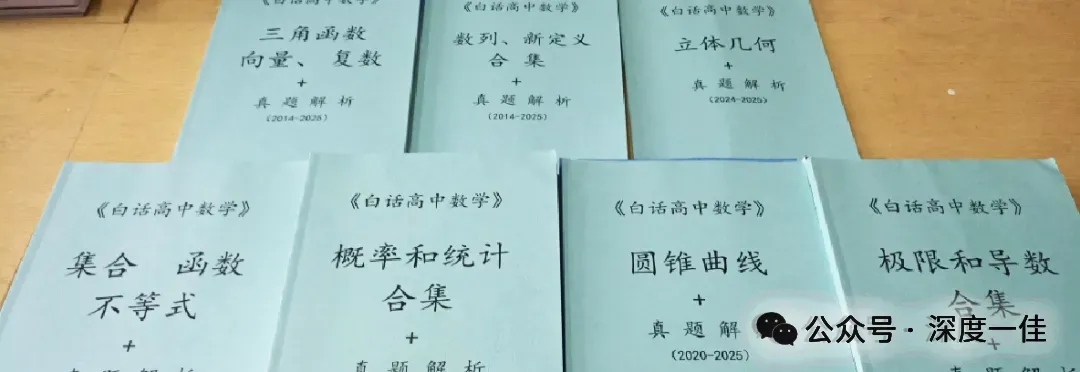 《白话高中数学》
三角函数
向量、复数
+
真题解析
(2014-2025)
《白话高中数学》
数列、新定义
合集
+
真题解析
(2014-2025)
《白话高中数学》
立体几何
+
真题解析
(2024-2025)
《白话高中数学》
集合 函数
不等式
+
真题解析
《白话高中数学》
概率和统计
合集
+
真题解析
《白话高中数学》
圆锥曲线
+
真题解
(2020-2025)
《白话高中数学》
极限和导数
合集
+
真题解析
公众号·深度一佳